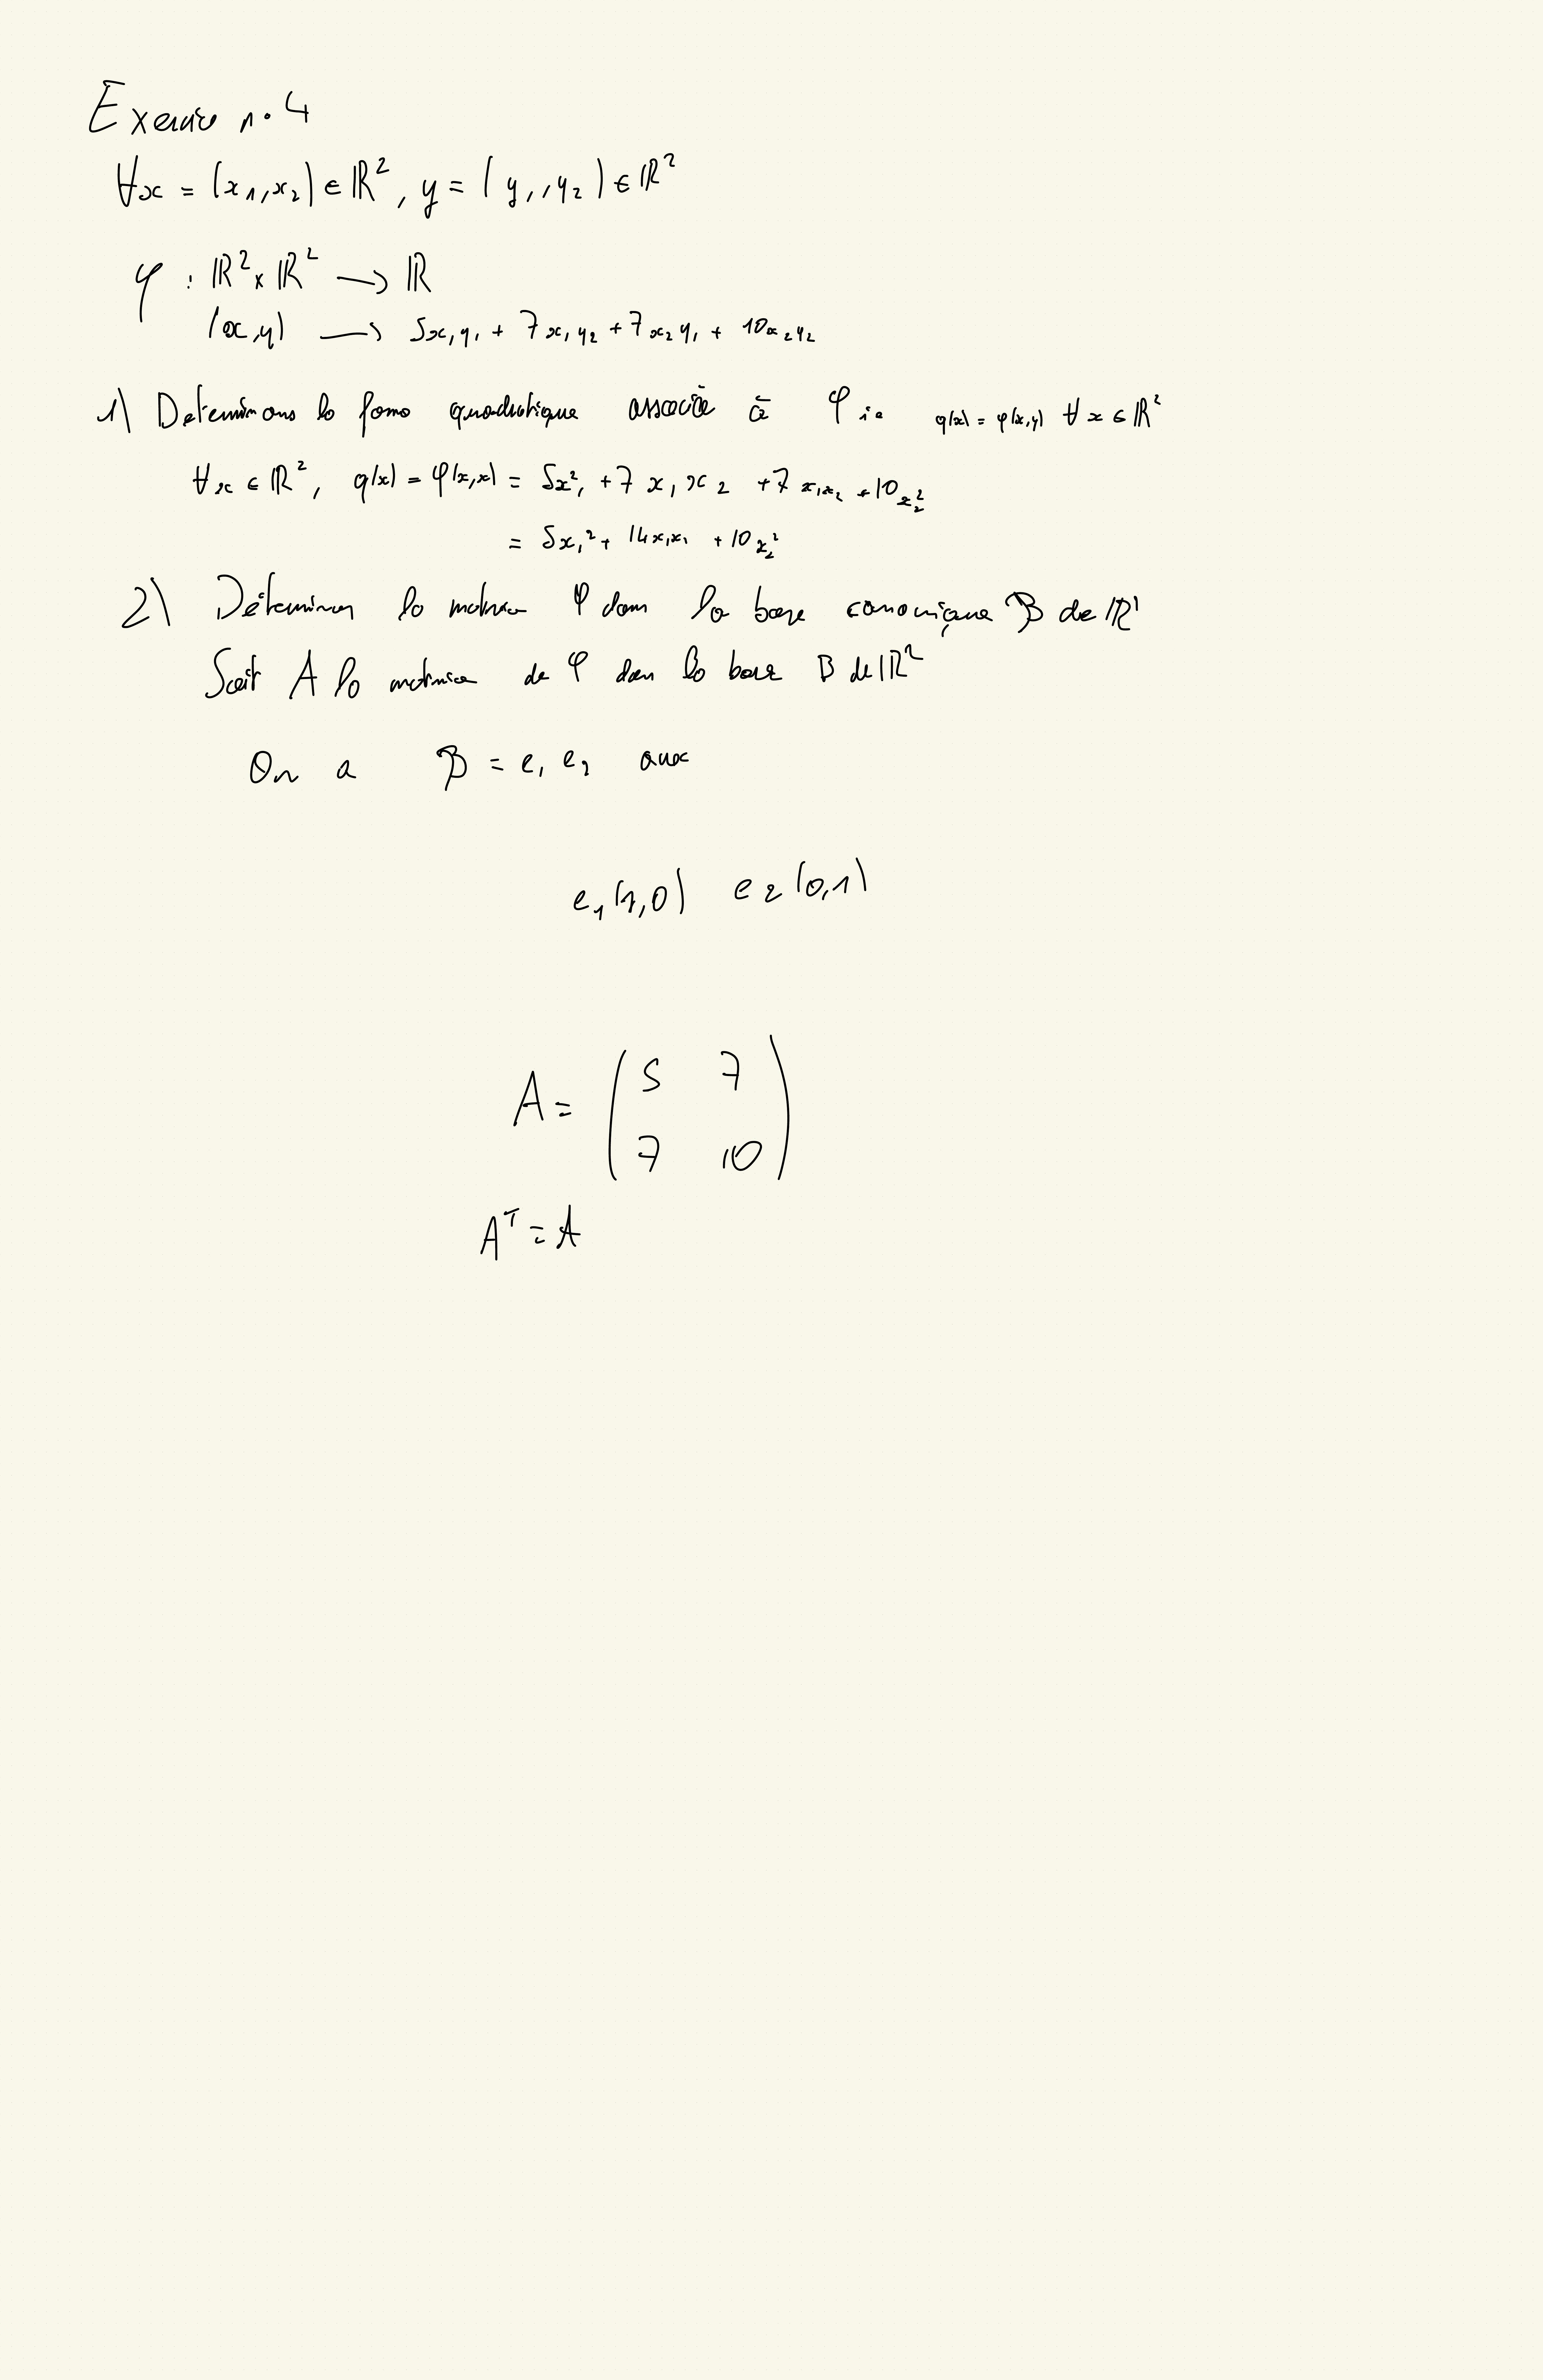 Exercice n°4
∀x = (x₁,x₂) ∈ ℝ², y = (y₁,y₂) ∈ ℝ²
φ : ℝ² x ℝ² → ℝ
(x,y) → 5x₁y₁ + 7x₁y₂ + 7x₂y₁ + 10x₂y₂
1) Determinons la forme quadratique associée à φ ie q(x) = φ(x,y) ∀x ∈ ℝ²
∀x ∈ ℝ², q(x) = φ(x,x) = 5x²₁ + 7x₁x₂ + 7x₁x₂ + 10x₂²
= 5x₁² + 14x₁x₁ + 10x₂²
2) Déterminer la matrice φ dans la base canonique B de ℝ¹
Soit A la matrice de φ dans la base B de ℝ²
On a B = e₁ e₂ avec
e₁(1,0) e₂(0,1)
A = ( 5 7
7 10 )
Aᵀ = A